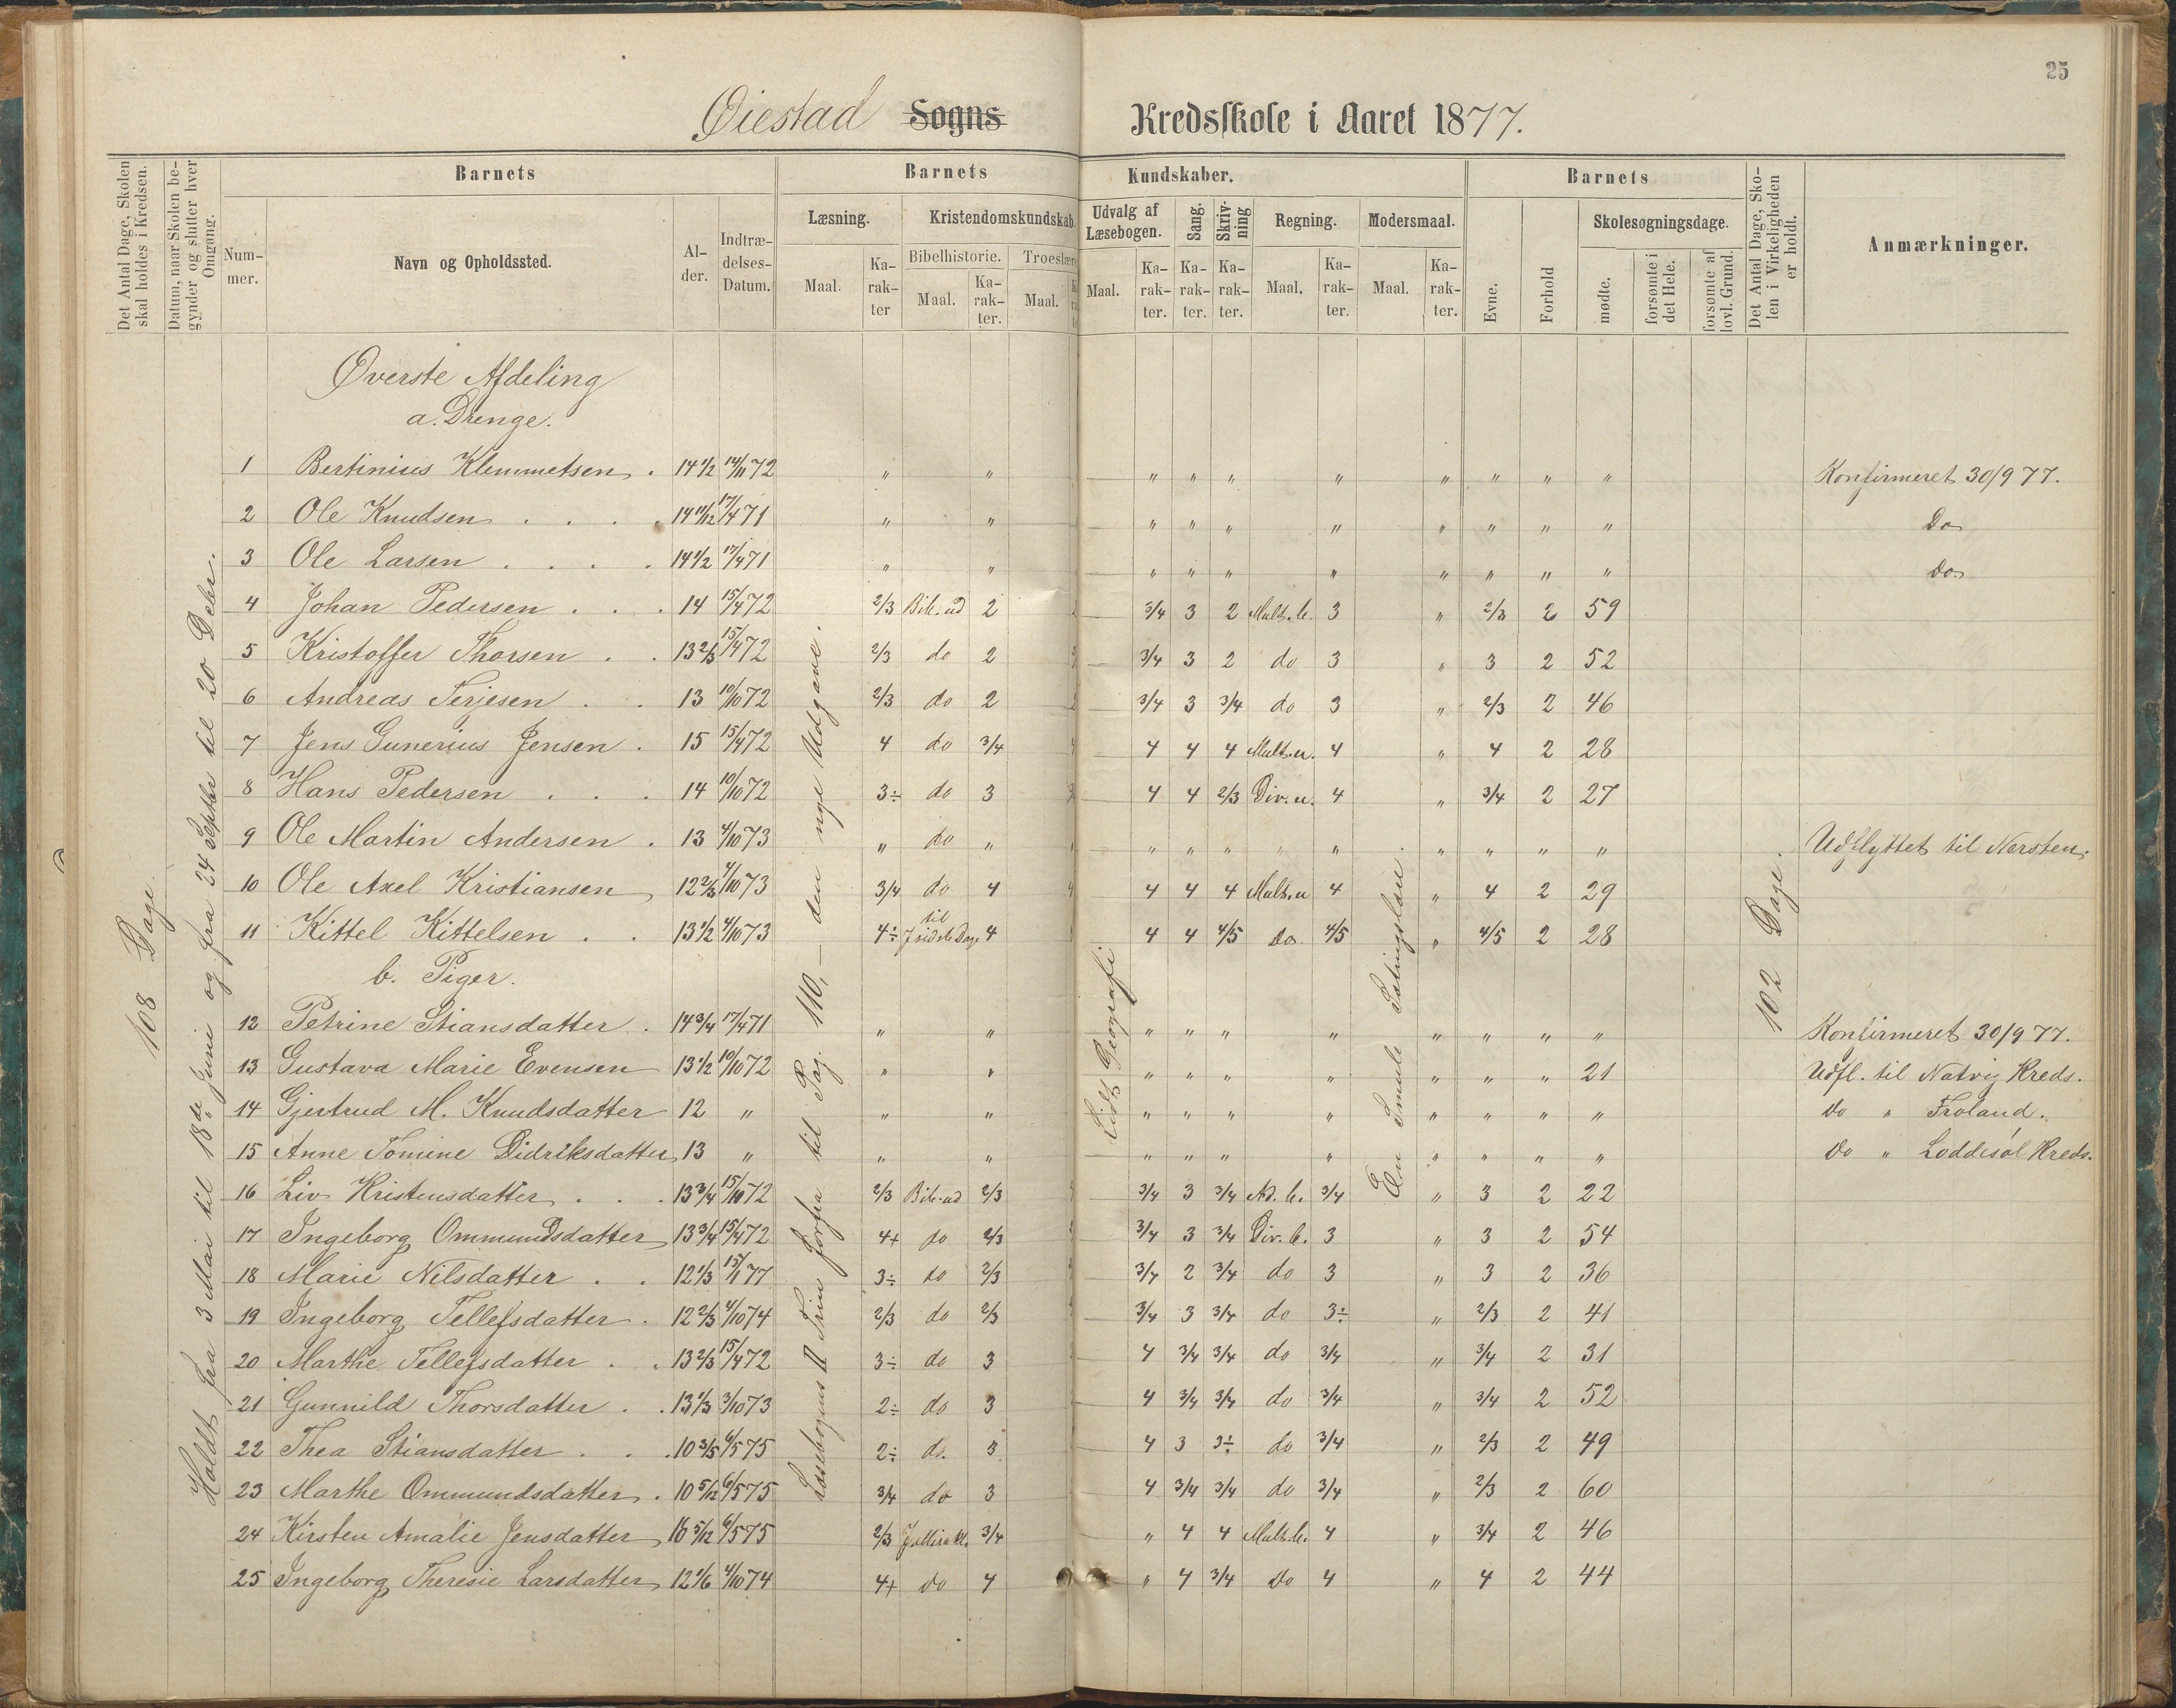 25
Øiestad Sogns Kredsskole i Aaret 1877.
Det Antal Dage, Skolen skal holdes i Kredsen.
Datum, naar Skolen begynder og slutter hver Omgang.
Barnets
Nummer.
Navn og Opholdssted.
Alder.
Indtrædelses-Datum.
Barnets Kundskaber.
Læsning.
Maal.
Karakter
Kristendomskundskab.
Bibelhistorie.
Maal.
Karakter.
Troeslære
Maal.
Udvalg af Læsebogen.
Maal.
Karakter.
Sang.
Karakter.
Skrivning
Karakter.
Regning.
Maal.
Karakter.
Modersmaal.
Maal.
Karakter.
Barnets
Evne.
Forhold
Skolesøgningsdage.
mødte.
forsømte i det Hele.
forsømte af lovl. Grund.
Det Antal Dage, Skolen i Virkeligheden er holdt.
Anmærkninger.
108 Dage.
Holdt fra 3 Mai til 18de Juni og fra 24 Septbr til 20 Debr.
Læsebogens II Trin forfra til Pag. 110, – den nye Udgave.
Lidt Geografi
En Smule Sætningslæn.
102 Dage.
Øverste Afdeling
a. Drenge.
1 Bertinius Klemmetsen . 14 1/2 14/11 72 " " " " " " " " " " Konfirmeret 30/9 77.
2 Ole Knudsen . . . . 14 11/12 17/4 71 " " " " " " " " " " Do
3 Ole Larsen . . . . 14 1/2 17/4 71 " " " " " " " " " " Do
4 Johan Pedersen . . . 14 15/4 72 2/3 Bib. ud 2 3/4 3 2 Mult. b. 3 " 2/3 2 59
5 Kristoffer Thorsen . . 13 2/3 15/4 72 2/3 do 2 3/4 3 2 do 3 " 3 2 52
6 Andreas Terjesen . . 13 10/10 72 2/3 do 2 3/4 3 3/4 do 3 " 2/3 2 46
7 Jens Gunerius Jensen . 15 15/4 72 4 do 3/4 4 4 4 Mult. u. 4 " 4 2 28
8 Hans Pedersen . . . 14 10/10 72 3÷ do 3 4 4 2/3 Div. u. 4 " 3/4 2 27
9 Ole Martin Andersen . 13 4/10 73 " do " " " " " " " " " " Udflyttet til Nersten.
10 Ole Axel Kristiansen 12 2/3 4/10 73 3/4 do 4 4 4 4 Mult. u 4 " 4 2 29
11 Kittel Kittelsen . . 13 1/2 4/10 73 4÷ til J sidste Dage 4 4 4 4/5 Do 4/5 " 4/5 2 28
b. Piger.
12 Petrine Stiansdatter . 14 3/4 17/4 71 " " " " " " " " " " Konfirmeret 30/9 77.
13 Gustava Marie Evensen 13 1/2 10/10 72 " " " " " " " " " 21 Udfl. til Natvig Kreds.
14 Gjertrud M. Knudsdatter 12 " " " " " " " " " " " Do " Froland.
15 Anne Tomine Didriksdatter 13 " " " " " " " " " " " Do " Loddesøl Kreds.
16 Liv Kristensdatter . . . 13 3/4 15/10 72 2/3 Bib. ud 2/3 3/4 3 3/4 Ad. b. 3/4 " 3 2 22
17 Ingeborg Ommundsdatter 13 3/4 15/4 72 4+ do 2/3 3/4 3 3/4 Div. b. 3 " 3 2 54
18 Marie Nilsdatter . . 12 1/3 15/1 77 3÷ do 2/3 3/4 2 3/4 do 3 " 3 2 36
19 Ingeborg Tellefsdatter . 12 2/3 4/10 74 2/3 do 2/3 3/4 3 3/4 do 3÷ " 2/3 2 41
20 Marthe Tellefsdatter . . 13 2/3 15/4 72 3÷ do 3 4 3/4 3/4 do 3/4 " 3/4 2 31
21 Gunnild Thorsdatter . . 13 1/3 3/10 73 2÷ do 3 4 3/4 3/4 do 3/4 " 3/4 2 52
22 Thea Stiansdatter . . . 10 3/5 6/5 75 2÷ do. 3 4 3 3÷ do 3/4 " 2/3 2 49
23 Marthe Ommundsdatter . 10 5/12 6/5 75 3/4 do 3 4 3/4 3/4 do 3/4 " 2/3 2 60
24 Kirsten Amalie Jensdatter 10 5/12 6/5 75 2/3 J. Mirakl. 3/4 " 4 4 Mult. b. 4 " 3/4 2 46
25 Ingeborg Theresie Larsdatter 12 1/6 4/10 74 4+ do 4 " 4 3/4 Do 4 " 4 2 44